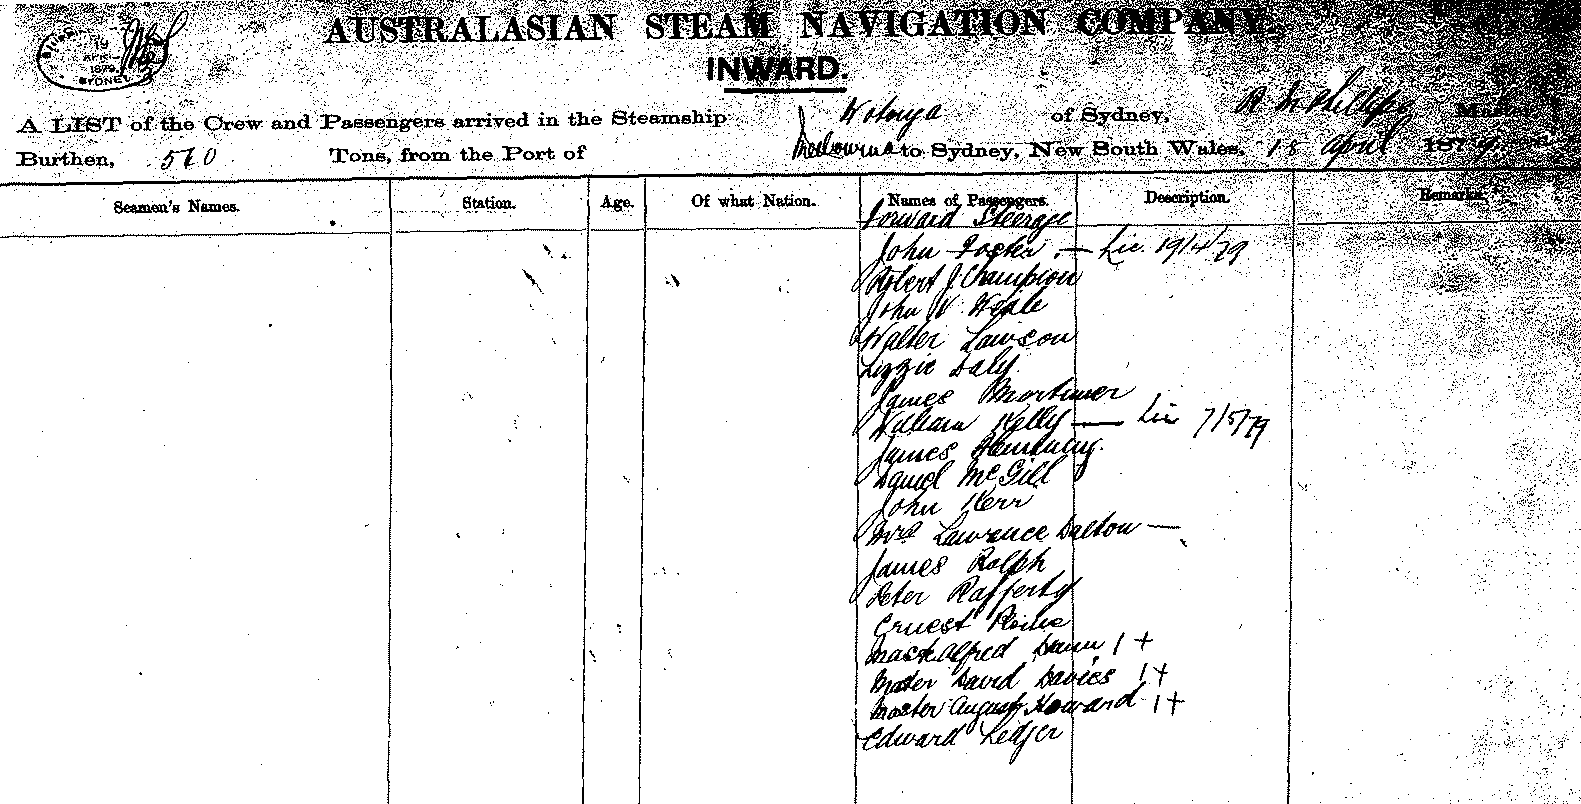 AUSTRALASIAN STEAM NAVIGATION COMPANY.
INWARD.
SYDNEY
1879
A LIST of the Crew and Passengers arrived in the Steamship Wotonga of Sydney, Phillips Master
Burthen, 510 Tons, from the Port of Melbourne to Sydney, New South Wales, 18 April 1879
Seamen's Names. Station. Age. Of what Nation. Names of Passengers. Description. Remarks.
Forward Steerage
John Foster — Lic. 19/4/79
Robert J. Champion
John W.
Walter Lawson
Lizzie Daly
James Mortimer
William Kelly — Lic 7/5/79
James Hemming.
Daniel McGill
John Kerr
Mrs Lawrence Dalton —
James Rolph
Peter Rafferty
Ernest
Mastr Alfred Dunn 1 +
Master David Davies 1 +
Master August Howard 1 +
Edward Ledger